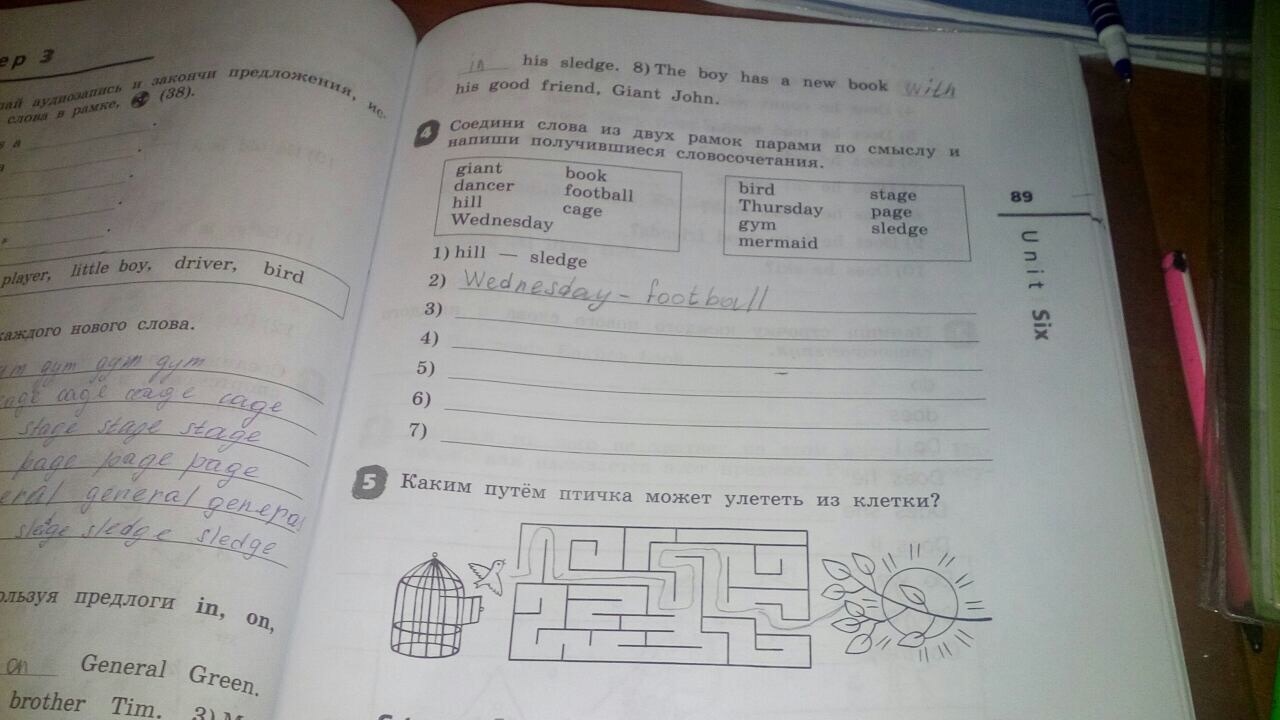 ер 3
ай аудиозапись и закончи предложения, ис-
слова в рамке, (38).
player, little boy, driver, bird
каждого нового слова.
gym gym gym
cage cage cage
stage stage stage
page page page
general general
sledge sledge sledge
ользуя предлоги in, on,
on General Green.
brother Tim. 3)
in his sledge. 8) The boy has a new book with
his good friend, Giant John.
4 Соедини слова из двух рамок парами по смыслу и
напиши получившиеся словосочетания.
giant book
dancer football
hill cage
Wednesday
bird stage
Thursday page
gym sledge
mermaid
1) hill — sledge
2) Wednesday - football
3)
4)
5)
6)
7)
89
Unit Six
5 Каким путём птичка может улететь из клетки?